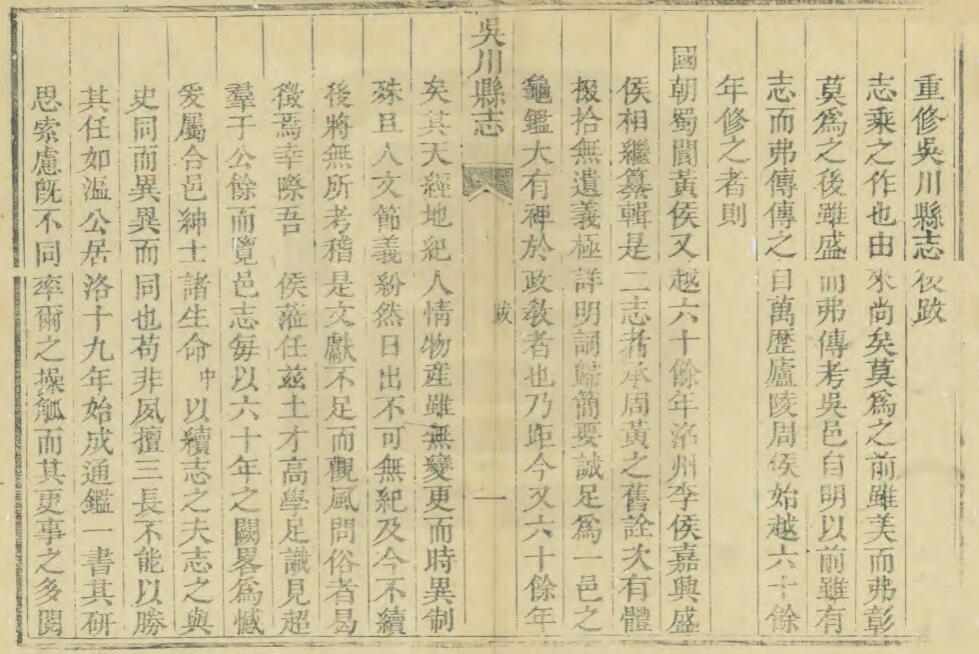 重修吳川縣志後跋
志乘之作也由來尚矣莫爲之前雖美而弗彰
莫爲之後雖盛而弗傳考吳邑自明以前雖有
志而弗傳傳之自萬歷廬陵周侯始越六十餘
年修之者則
國朝蜀閬黃侯又越六十餘年洺州李侯嘉興盛
侯相繼纂輯是二志者承周黃之舊詮次有體
掇拾無遺義極詳明詞歸簡要誠足爲一邑之
龜鑑大有裨於政敎者也乃距今又六十餘年
吳川縣志
跋
一
矣其天經地紀人情物產雖無變更而時異制
殊且人文節義紛然日出不可無紀及今不續
後將無所考稽是文獻不足而觀風問俗者曷
徵焉幸際吾 侯蒞任茲土才高學足識見超
羣于公餘而覽邑志每以六十年之闕畧爲憾
爰屬合邑紳士諸生命中以續志之夫志之與
史同而異異而同也苟非夙擅三長不能以勝
其任如溫公居洛十九年始成通鑑一書其研
思索慮旣不同率爾之操觚而其更事之多閱